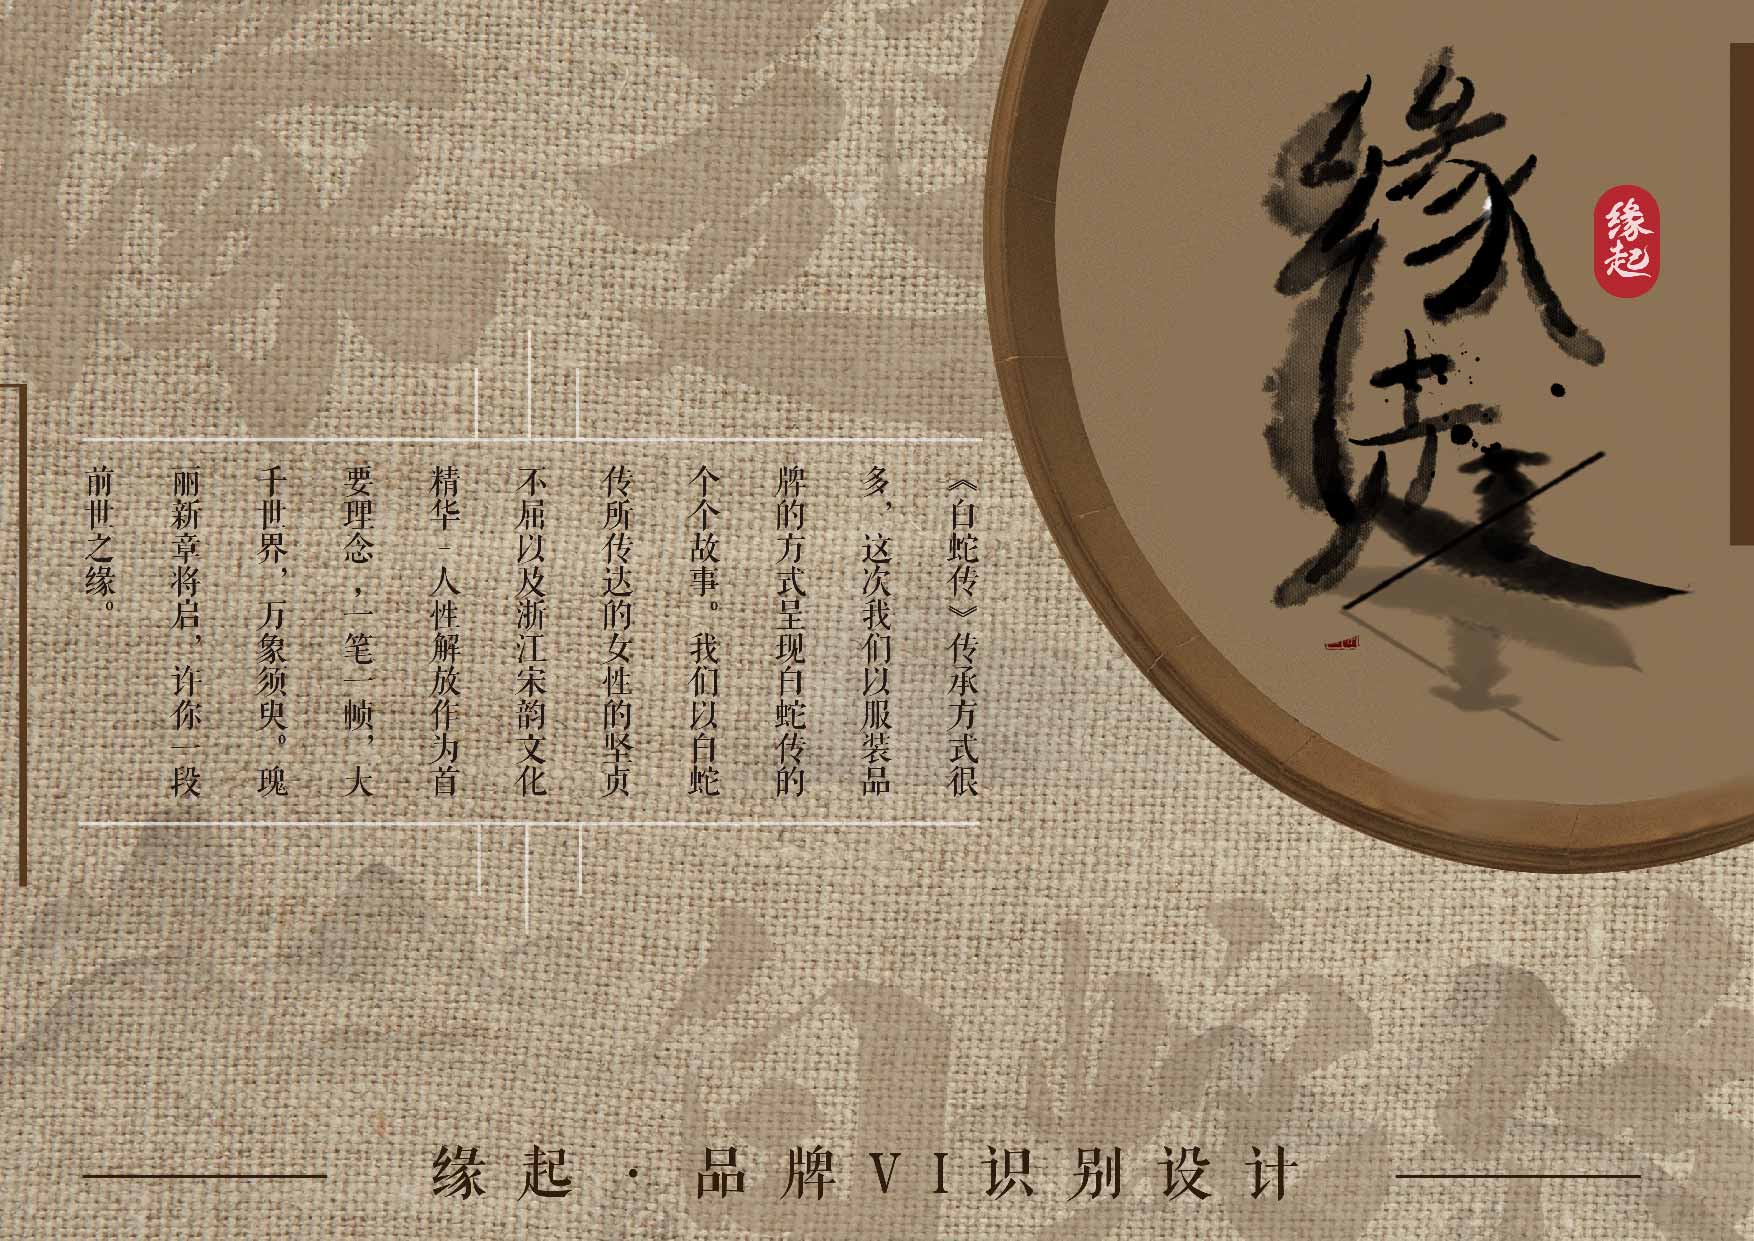 缘起
缘起
《白蛇传》传承方式很
多，这次我们以服装品
牌的方式呈现白蛇传的
个个故事。我们以白蛇
传所传达的女性的坚贞
不屈以及浙江宋韵文化
精华-人性解放作为首
要理念，一笔一帧，大
千世界，万象须臾。瑰
丽新章将启，许你一段
前世之缘。
缘起·品牌VI识别设计